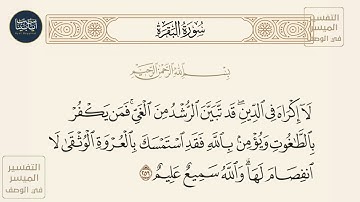 سُورَةُ البَقَرَةِ
التفسير
الميسر
في الوصف
بِسْمِ ٱللَّهِ ٱلرَّحْمَٰنِ ٱلرَّحِيمِ
لَآ إِكْرَاهَ فِى ٱلدِّينِ ۖ قَد تَّبَيَّنَ ٱلرُّشْدُ مِنَ ٱلْغَىِّ ۚ فَمَن يَكْفُرْ
بِٱلطَّٰغُوتِ وَيُؤْمِنۢ بِٱللَّهِ فَقَدِ ٱسْتَمْسَكَ بِٱلْعُرْوَةِ ٱلْوُثْقَىٰ لَا
ٱنفِصَامَ لَهَا ۗ وَٱللَّهُ سَمِيعٌ عَلِيمٌ ٢٥٦
التفسير
الميسر
في الوصف